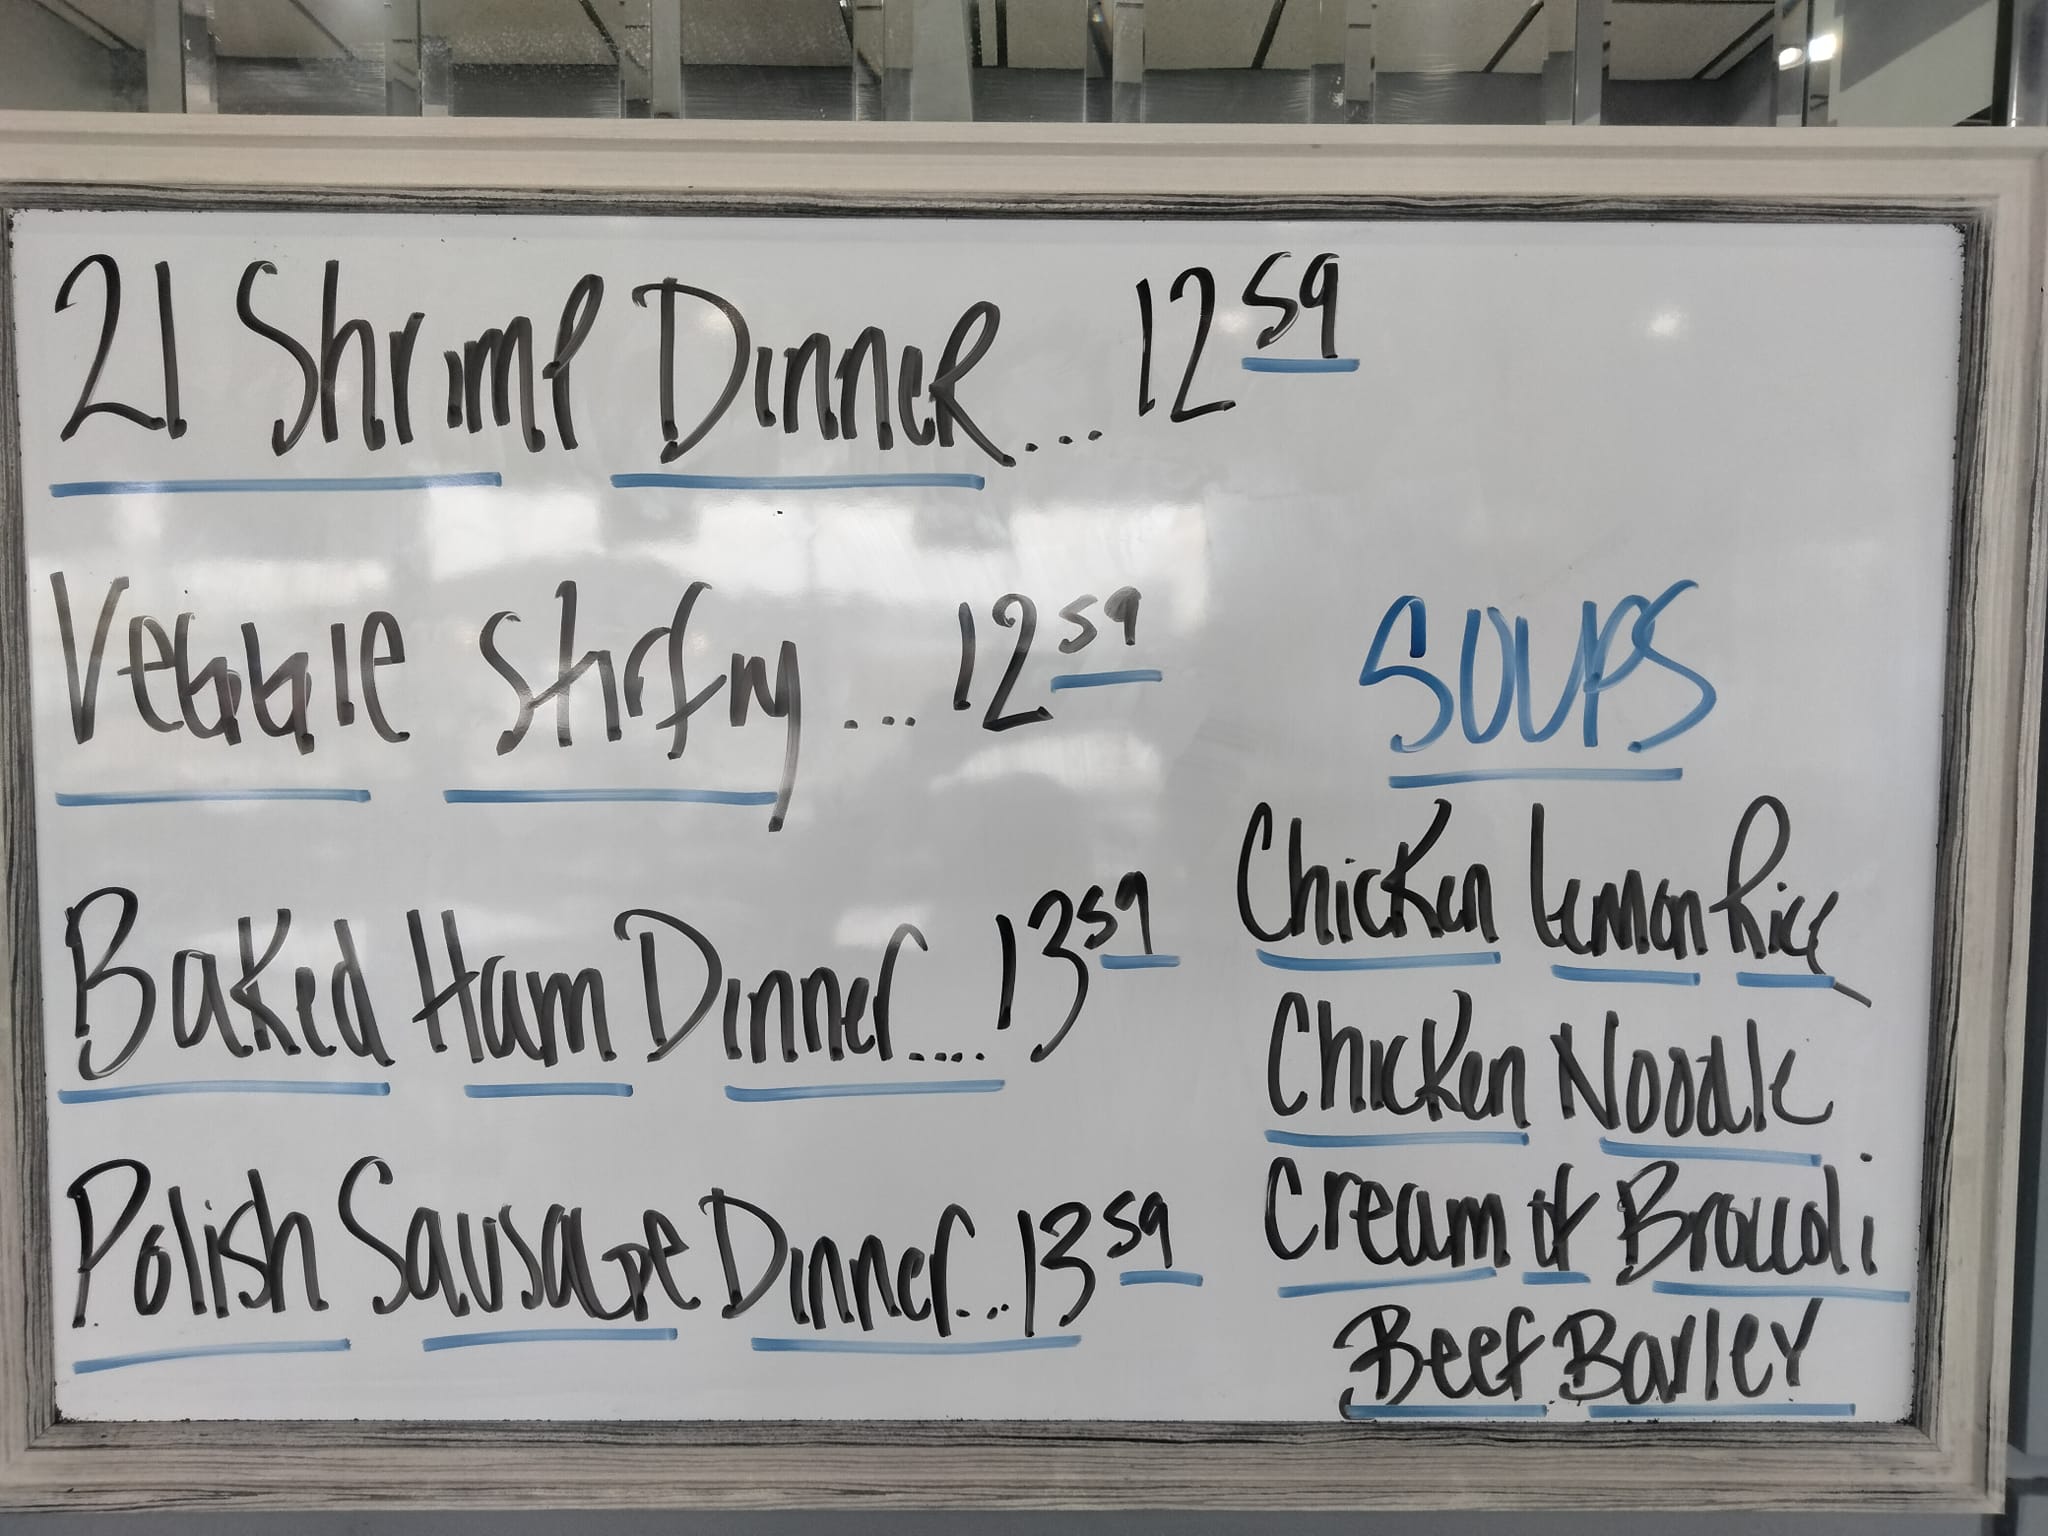 21 Shrimp Dinner... 12 59
Veggie Stirfry... 12 59
Baked Ham Dinner.... 13 59
Polish Sausage Dinner...13 59
SOUPS
Chicken Lemon Rice
Chicken Noodle
Cream of Broccoli
Beef Barley